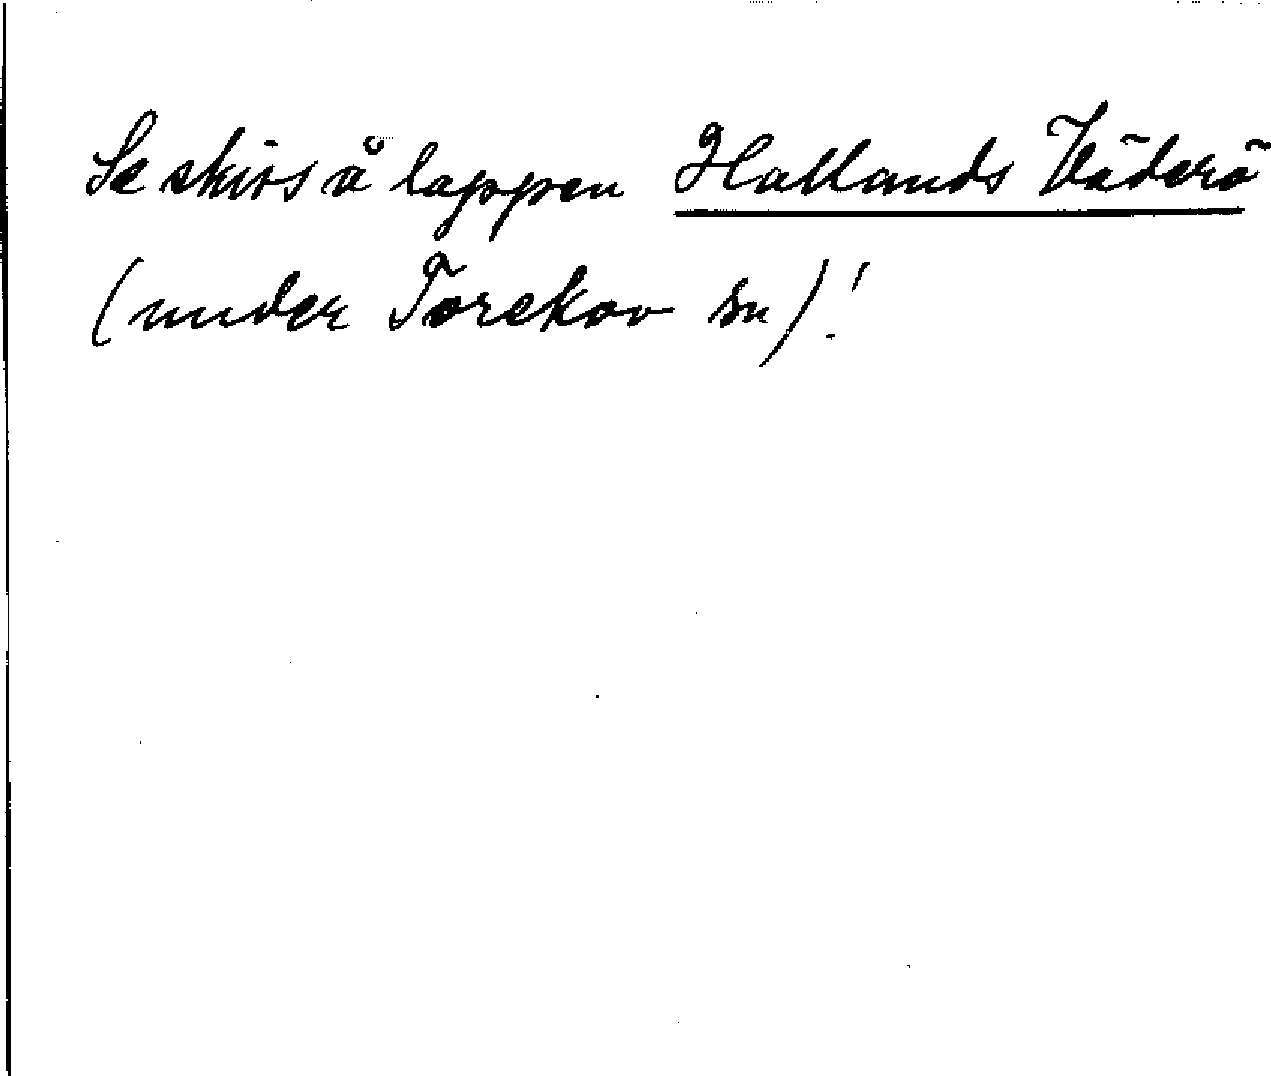 Se skiss å lappen Hallands Väderö
(under Torekov sn)!